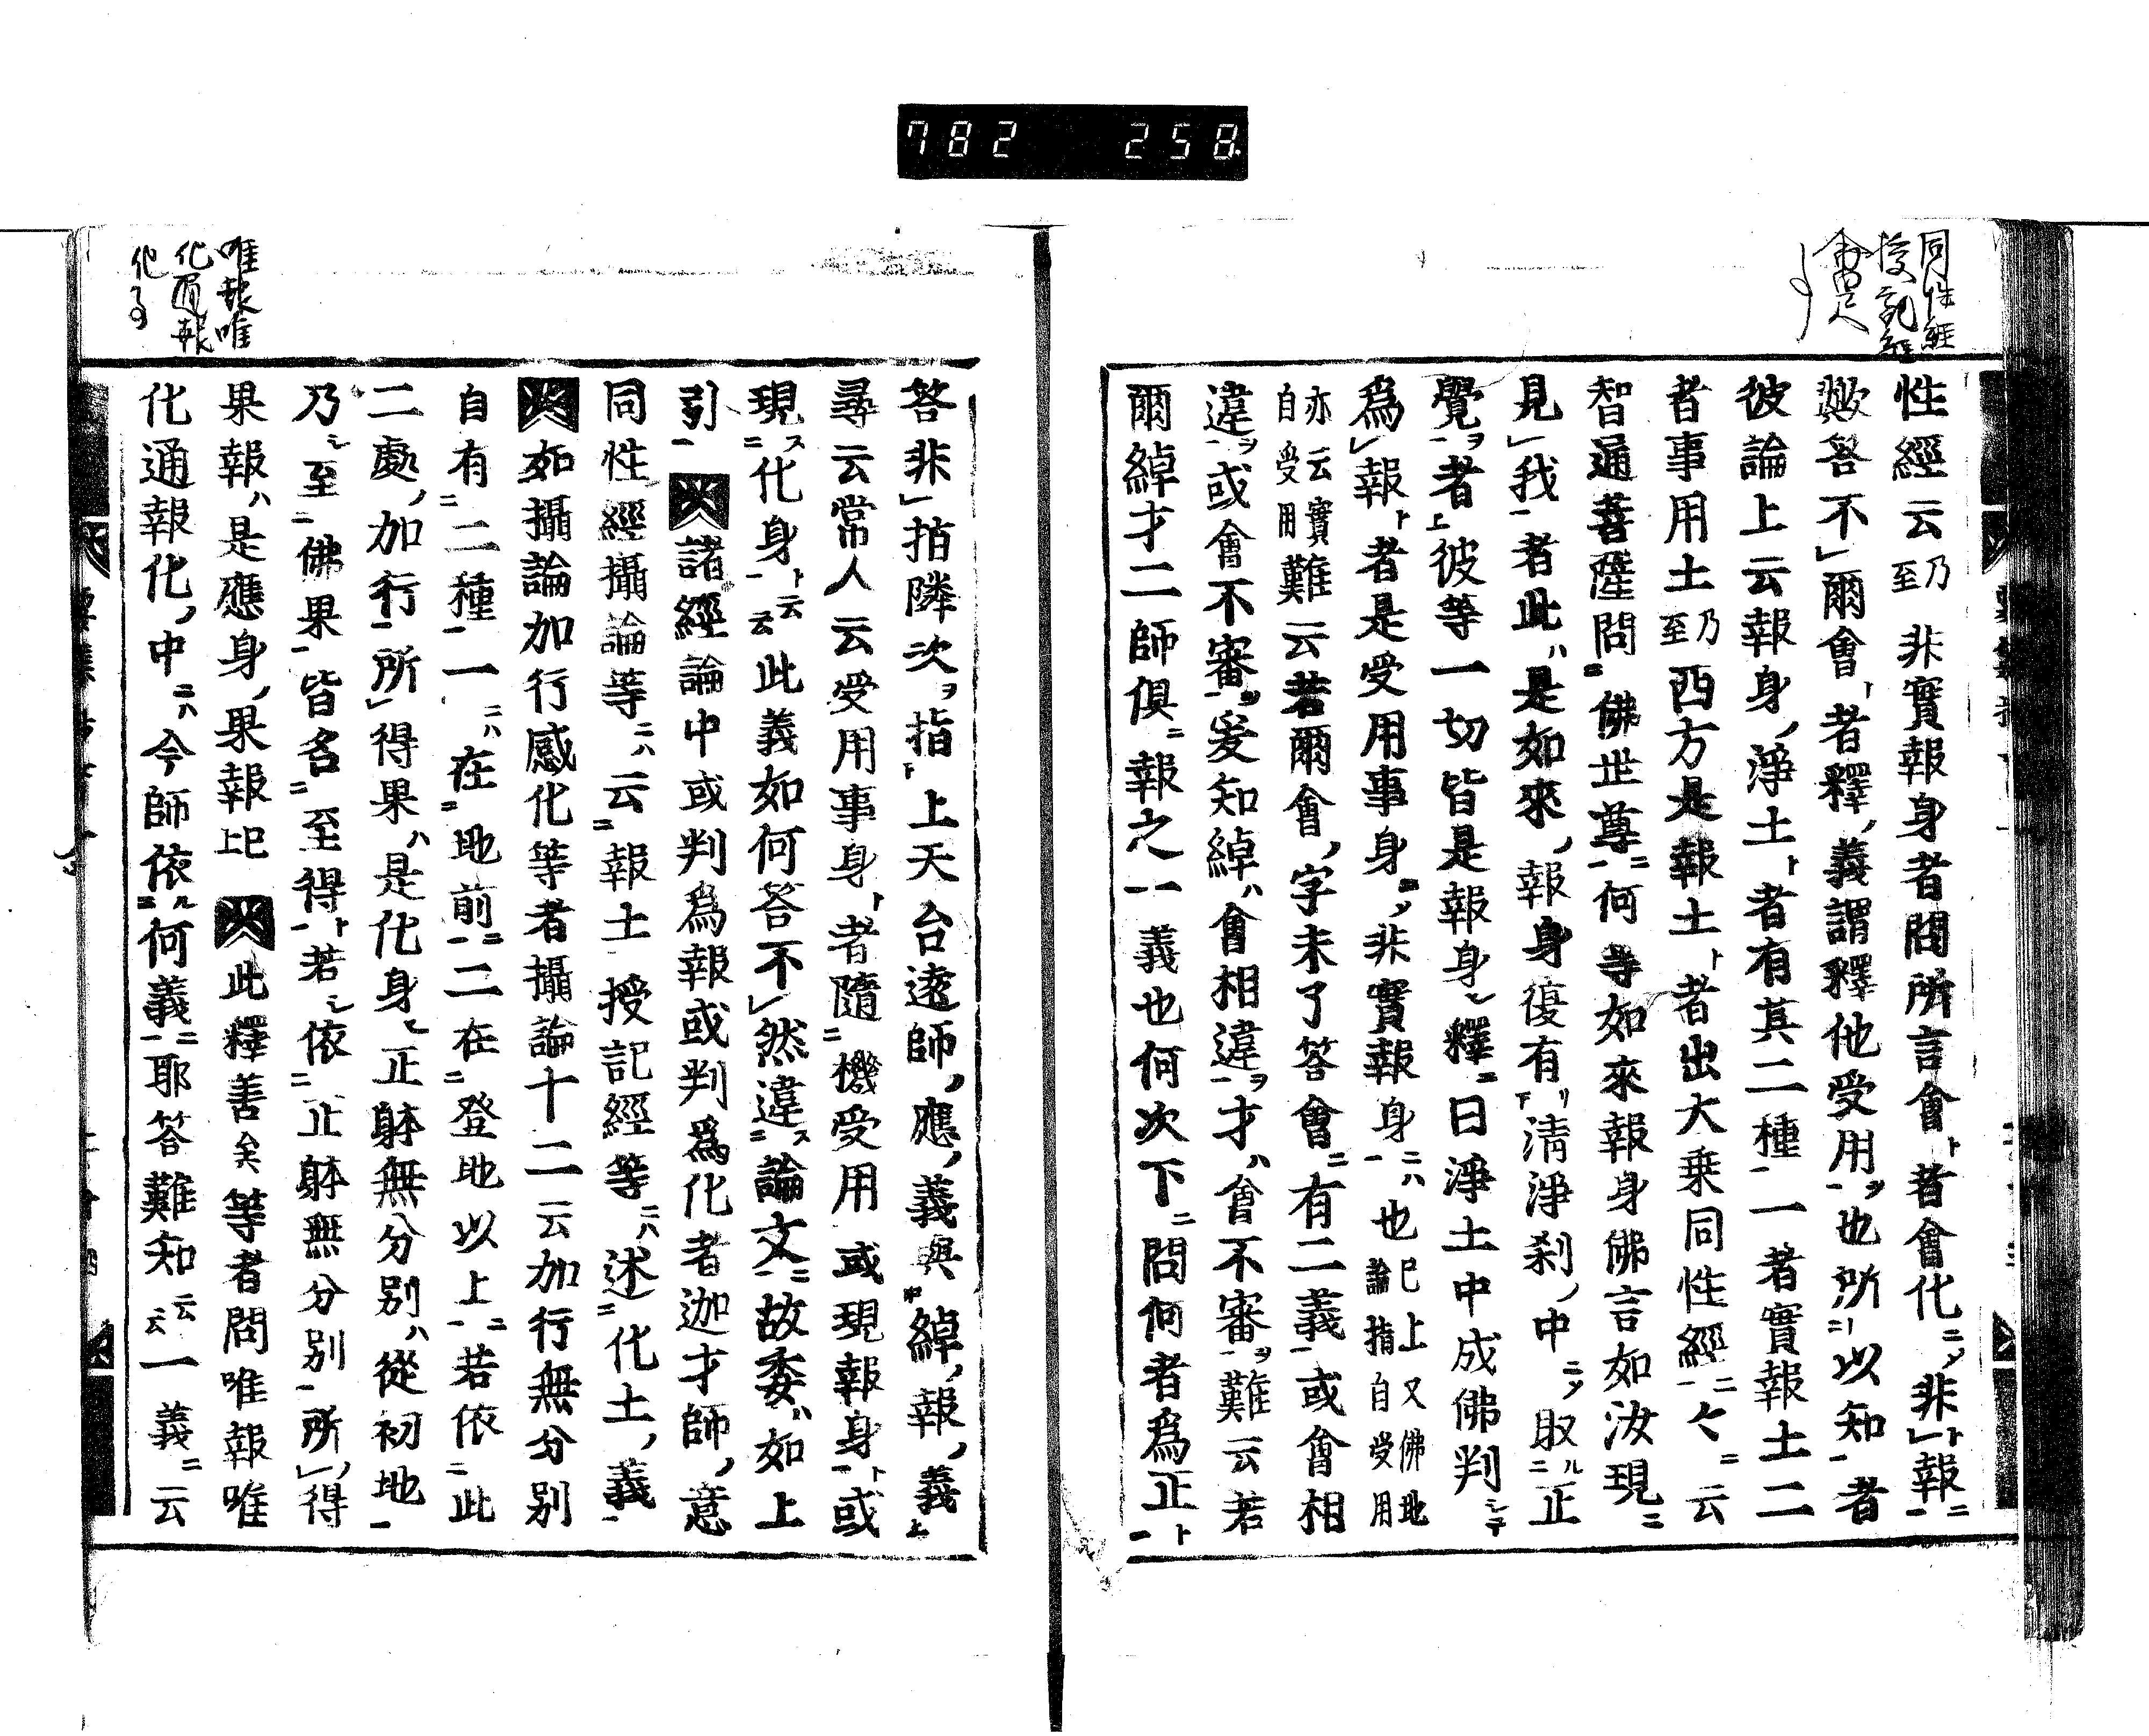 782 258
同性經
授記經
性經云乃至非實報身者問所言會ト者會化ニソ非報ト
歟答不爾會ト者釋ノ義謂釋他受用ヲ也所以知者
彼論上云報身ノ淨土ト者有其二種一者實報土二
者事用土乃至西方是報土ト者出大乘同性經々云
智通菩薩問佛世尊何等如來報身佛言如汝現
見我者此ハ是如來ノ報身復有清淨刹ノ中ニソ取ル正
覺ヲ者彼等一切皆是報身ト釋曰淨土中成佛判シテ
爲報ト者是受用事身ニソ非實報身ニハ也已上又佛地論指自受用
亦云實自受用難云若爾會ノ字未了答會有二義或會相
違ヲ或會不審ヲ爰知綽ハ會相違ヲ才ハ會不審ヲ難云若
爾綽才二師俱報之一義也何次下問何者爲正ト
唯報唯
化通報
化事
答非指隣次ヲ指ト上天台遠師ノ應ノ義與綽ノ報ノ義
尋云常人云受用事身ト者隨機受用或現報身ト或
現ス化身ト云云此義如何答不然違ス論文故委ハ如上
引諸經論中或判爲報或判爲化者迦才師ノ意
同性經攝論等ニハ云報土授記經等ニハ述化土ノ義
如攝論加行感化等者攝論十二云加行無分別
自有二種一ニハ在地前二在登地以上若依此
二處ノ加行所得果ハ是化身ト正躰無分別ハ從初地
乃シ至佛果皆名至得ト若シ依正躰無分別ノ所得
果報ハ是應身ノ果報已上此釋善矣等者問唯報唯
化通報化ノ中ニハ今師依ル何義耶答難知云云一義云